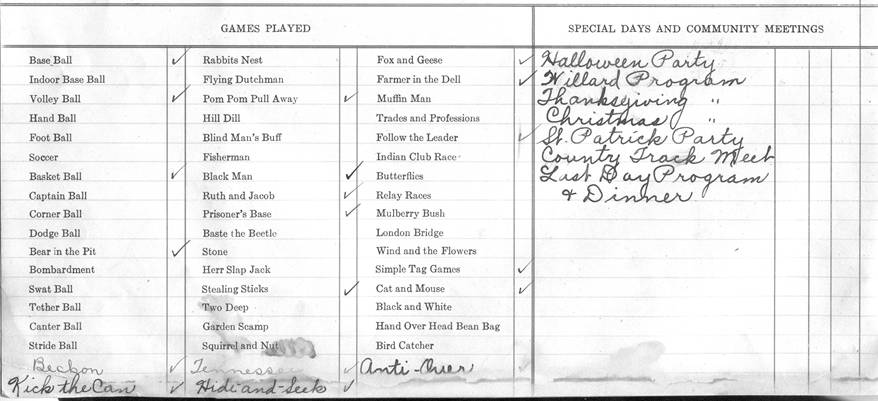 GAMES PLAYED SPECIAL DAYS AND COMMUNITY MEETINGS
Base Ball ✓ Rabbits Nest Fox and Geese ✓ Halloween Party
Indoor Base Ball Flying Dutchman Farmer in the Dell ✓ Willard Program
Volley Ball ✓ Pom Pom Pull Away ✓ Muffin Man Thanksgiving "
Hand Ball Hill Dill Trades and Professions Christmas "
Foot Ball Blind Man's Buff Follow the Leader ✓ St. Patrick Party
Soccer Fisherman Indian Club Race County Track Meet
Basket Ball ✓ Black Man ✓ Butterflies Last Day Program
Captain Ball Ruth and Jacob ✓ Relay Races & Dinner
Corner Ball Prisoner's Base ✓ Mulberry Bush
Dodge Ball Baste the Beetle London Bridge
Bear in the Pit ✓ Stone Wind and the Flowers
Bombardment Herr Slap Jack Simple Tag Games ✓
Swat Ball Stealing Sticks ✓ Cat and Mouse ✓
Tether Ball Two Deep Black and White
Canter Ball Garden Scamp Hand Over Head Bean Bag
Stride Ball Squirrel and Nut Bird Catcher
Beckon ✓ Tennessee ✓ Anti-Over ✓
Kick the Can ✓ Hide-and-Seek ✓